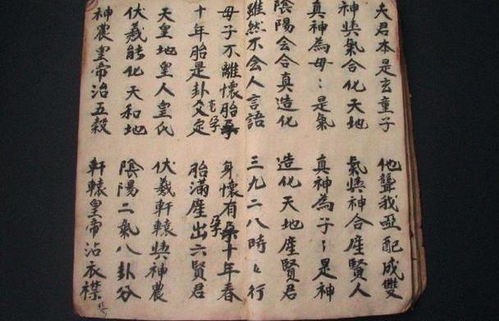 夫君本是玄童子 他聾我配成雙
神與氣合化天地 氣與神合座賢人
真神為母:是氣 真神為子:是神
陰陽会合真造化 造化天地座賢君
雖然不会人言語 三九二八時々行
母子不離懷胎孕 身懷有孕十年春
十年胎是卦爻定 胎滿座出六賢君
天皇地皇人皇氏 伏羲軒轅與神農
伏羲能化天和地 陰陽二氣八卦分
神農皇帝治五穀 軒轅皇帝沾衣襟